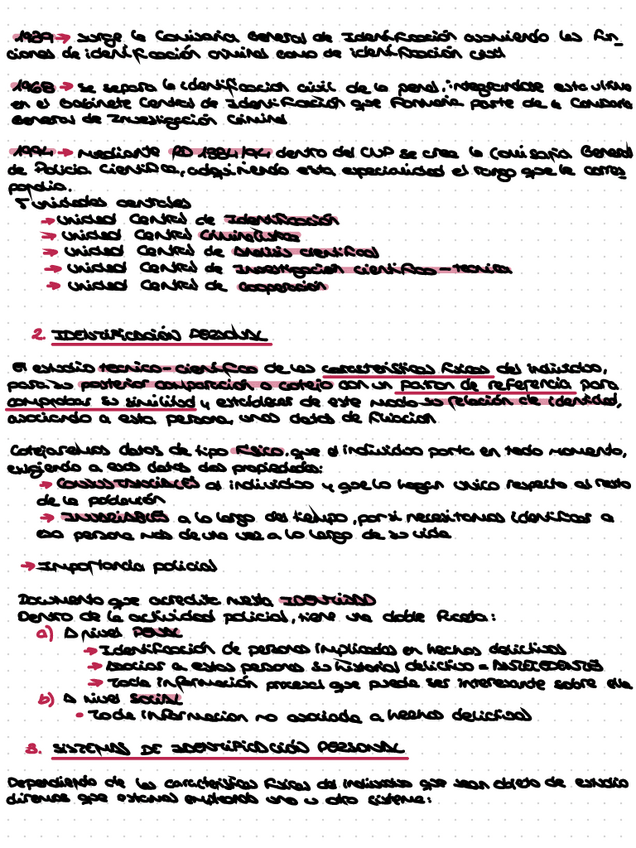 1939 → surge la Comisaría General de Identificación asumiendo las fun_
ciones de identificación criminal como de identificación civil
1968 → se separa la identificación civil de la penal, integrándose esta última
en el Gabinete Central de Identificación que formaría parte de la Comisaría
General de Investigación Criminal
1994 → mediante RD 1334/94 dentro del CNP se crea la Comisaría General
de Policía Científica, adquiriendo esta especialidad el rango que le corres
pondía.
5 unidades centrales
→ Unidad Central de Identificación
→ Unidad Central Criminalística
→ Unidad Central de Análisis Científicos
→ Unidad Central de Investigación científico-técnica
→ Unidad Central de Cooperación
2. IDENTIFICACIÓN PERSONAL
El estudio técnico-científico de las características físicas del individuo,
para su posterior comparación o cotejo con un patrón de referencia para
comprobar su similitud y establecer de este modo su relación de identidad,
asociando a esta persona, unos datos de filiación
Cotejaremos datos de tipo físico, que el individuo porta en todo momento,
exigiendo a esos datos dos propiedades:
→ al individuo y que lo hagan único respecto al resto
de la población
→ INVARIABLES a lo largo del tiempo, por si necesitamos identificar a
esa persona más de una vez a lo largo de su vida
→ Importancia policial
Documento que acredite nuestra IDENTIDAD
Dentro de la actividad policial, tiene una doble faceta:
a) A nivel PENAL
→ Identificación de personas implicadas en hechos delictivos
→ Asociar a estas personas su historial delictivo = ANTECEDENTES
→ Toda información procesal que pueda ser interesante sobre ella
b) A nivel SOCIAL
• Toda información no asociada a hechos delictivos
3. SISTEMAS DE IDENTIFICACIÓN PERSONAL
Dependiendo de las características físicas del individuo que sean objeto de estudio
diremos que estamos empleando uno u otro sistema: